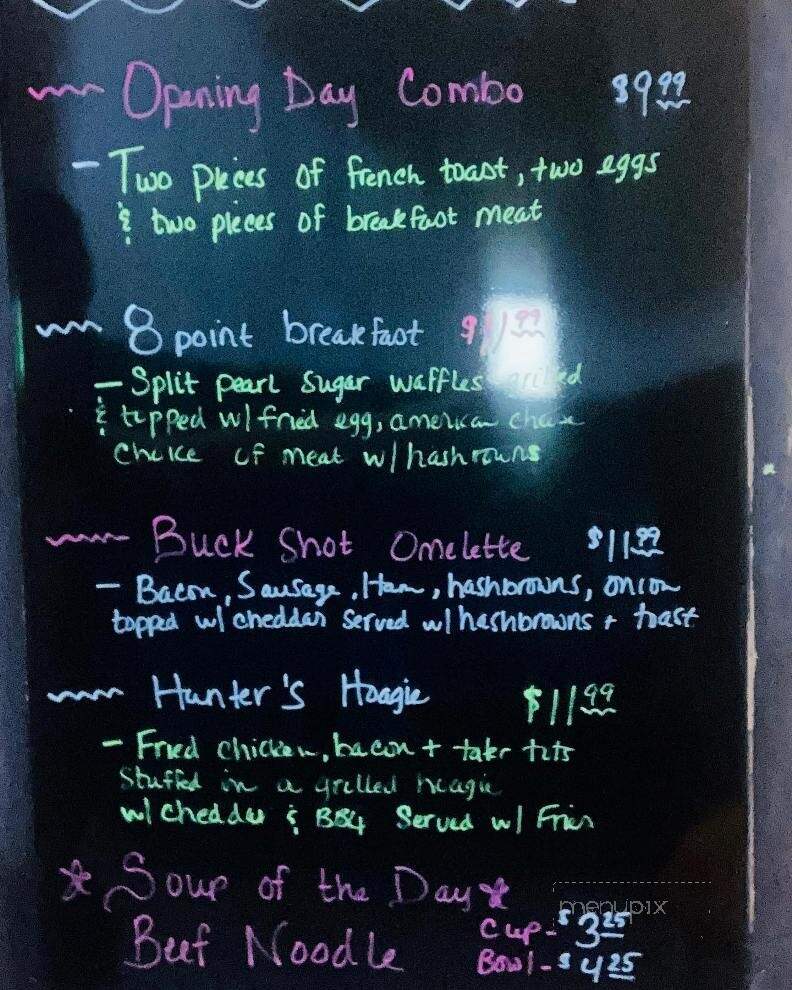 Opening Day Combo $9.99
- Two pieces of french toast, two eggs
& two pieces of breakfast meat
8 point breakfast $11.99
- Split pearl sugar waffles grilled
& topped w/ fried egg, american cheese
choice of meat w/ hashrowns
Buck Shot Omelette $11.99
- Bacon, Sausage, Ham, hashbrowns, onion
topped w/ cheddar served w/ hashbrowns + toast
Hunter's Hoagie $11.99
- Fried chicken, bacon + tater tots
Stuffed in a grilled hoagie
w/ cheddar & BBQ Served w/ Fries
Soup of the Day
Beef Noodle
Cup - $3.25
Bowl - $4.25
menupix